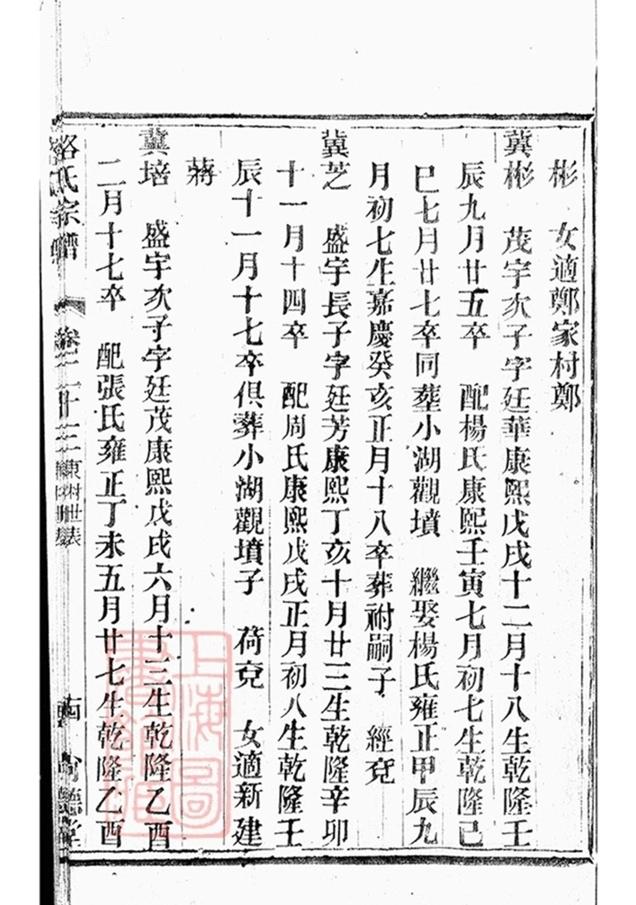 彬 女適鄭家村鄭
冀彬 茂宇次子字廷華康熙戊戌十二月十八生乾隆壬
辰九月廿五卒 配楊氏康熙壬寅七月初七生乾隆己
巳七月廿七卒同塟小湖觀墳 繼娶楊氏雍正甲辰九
月初七生嘉慶癸亥正月十八卒葬祔嗣子 經兗
冀芝 盛宇長子字廷芳康熙丁亥十月廿三生乾隆辛卯
十一月十四卒 配周氏康熙戊戌正月初八生乾隆壬
辰十一月十七卒俱葬小湖觀墳子 荷兗 女適新建
蔣
冀培 盛宇次子字廷茂康熙戊戌六月十三生乾隆乙酉
二月十七卒 配張氏雍正丁未五月廿七生乾隆乙酉
氏宗譜 卷二十三 東村世表 堂
上海圖書館